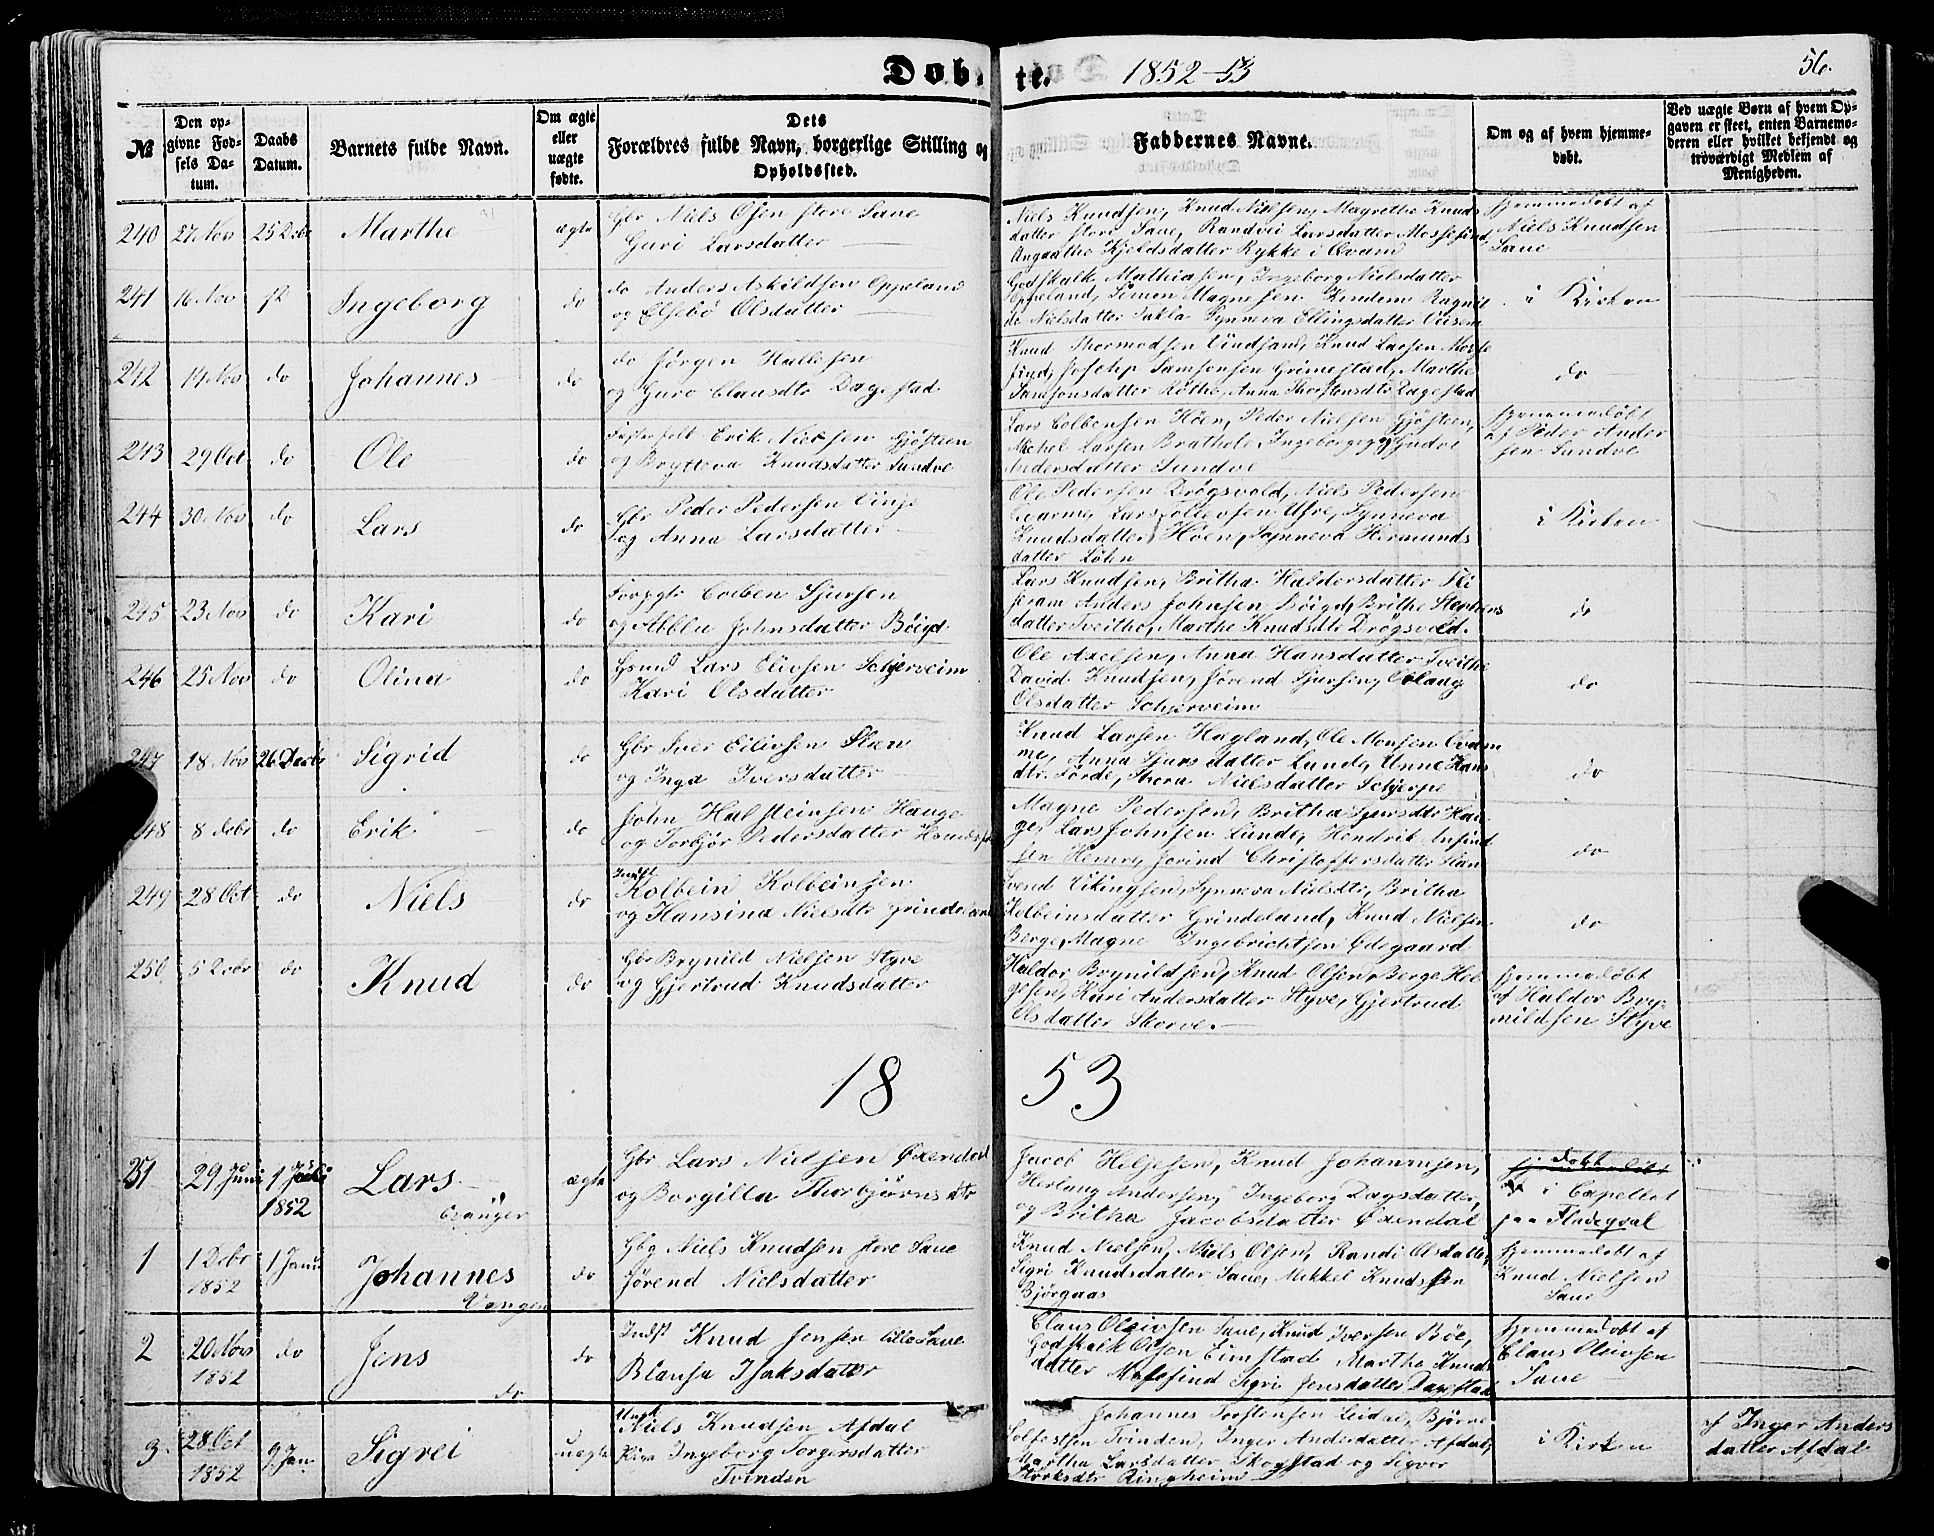 Døbte. 1852-53
56.
№
Den opgivne Fødsels Datum.
Daabs Datum.
Barnets fulde Navn.
Om ægte eller uægte fødte.
Dets Forældres fulde Navn, borgerlige Stilling og Opholdssted.
Faddernes Navne.
Om og af hvem hjemmedøbt.
Ved uægte Børn af hvem Opgaven er skeet, enten Barnemoderen eller hvilket bekjendt og troværdigt Medlem af Menigheden.
240 27 Nov 25 Dcbr Marthe ægte
Gbr Niels Olsen store Saue
Guri Larsdatter
Niels Knudsen, Knud Nielsen, Magrethe Knuds
datter store Saue, Randvei Larsdatter Mossefind
Angaatha Kjeldsdatter Rykke i Qvam
hjemmedøbt af
Niels Knudsen
Saue
241 16 Nov Ingeborg do
do Anders Askildsen Oppeland
og Elsebö Olsdatter
Godskalk Mathiasen, Ingeborg Nielsdatter
Oppeland, Simon Magnesen Kindem Ragnil
de Nielsdatter Takla Synneva Ellingsdatter
i Kirken
242 14 Nov do Johannes do
do Jörgen Hallesen
og Guro Clausdtr Dagestad
Knud Thormodsen Lindsand, Knud Larsen Mosse
find, Joseph Samsonsen Grimestad, Marthe
Samsonsdatter Röthe, Anna Thorstensdtr Dagestad
do
243 29 Oct do Ole do
Erik Nielsen Gjösteen
og Brytteva Knudsdatter Sundve
Lars Colbensen Höen, Peder Nielsen Gjösteen,
Michel Larsen Brathole, Ingeborg og Gudve
Pedersdatter Sundve
hjemmedøbt
af Peder Ander
sen Sundve
244 30 Nov do Lars do
Gbr Peder Pedersen Vinje
og Anna Larsdatter
Ole Pedersen Drögsvold, Niels Pedersen
Qvarme, Lars Ollevsen Ufre, Synneva
Knudsdatter Höen, Synneva Hermunds
datter Löhn
i Kirken
245 23 Nov do Kari do
Colben Sjursen
og Abbla Johnsdatter Böigd
Lars Knudsen, Britha Haldorsdatter Fli
seram Anders Johnsen Böigd, Brithe
datter Tveithe, Marthe Knudsdtr Drögsvold.
do
246 25 Nov do Olina do
Hsmd Lars Elivsen Schjerveim
Kari Olsdatter
Ole Axelsen, Anna Hansdatter Tveithe
David Knudsen, Jörend Sjursen,
Olsdatter Schjerveim
do
247 18 Nov 26 Decbr Sigrid do
Gbr Iver Eilivsen Flæn
og Inga Iversdatter
Knud Larsen Hagland, Ole Monsen Qvam
me, Anna Sjursdatter Lund, Anne Hans
dtr. Förde, Thora Nielsdatter Schjerpe
do
248 8 Dcbr do Erik do
John Halsteinsen Hauge
og Torbjör Pedersdatter
Magne Pedersen, Britha Sjursdtr Hau
ge, Lars Johnsen Lunde, Hendrik Anfind
sen Hemre, Jorind Christoffersdatter Flæn
do
249 28 Oct do Niels do
Indst
Kolbein Kolbeinsen
og Hansina Nielsdtr Grindeland
Svend Vikingsen, Synneva Nielsdtr, Britha
Kolbeinsdatter Grindeland, Knud Nielsen
Berge, Magne Ingebrichtsen Ødegaard
do
250 5 Dcbr do Knud do
Gbr Brynild Nielsen Styve
og Gjertrud Knudsdatter
Haldor Brynildsen, Knud Olsen, Berge Hel
gesen, Kari Andersdatter Styve, Gjertrud
Olsdatter Skorve.
hjemmedøbt
af Haldor Bry-
nildsen Styve
18 53
251 29 Juni 1 Juli 1852 Lars ægte
Evanger
Gbr Lars Nielsen Øxendal
og Borgilla Thorbjörnsdtr
Jacob Heljesen, Knud Johannesen,
Herlaug Andersen, Ingeborg Dagsdatter,
og Britha Jacobsdatter Øxendal
døbt
i Capellet
paa Fladeqval
1 1 Dcbr 1852 1 Janu Johannes do
Vangen
Gbg Niels Knudsen store Saue
Jörend Nielsdatter
Knud Nielsen, Niels Olsen, Randi Olsdatter,
Sigri Knudsdatter Saue, Mikkel Knudssen
Björgaas
hjemmedøbt af
Knud Nielsen
Saue
2 20 Nov 1852 do Jens do
do
Indst Knud Jensen lille Saue
Blansa Isaksdatter
Claus Oleivsen Saue, Knud Iversen Böe,
Godskalk Olsen Eimstad Marthe Knuds
datter Mossefind Sigri Jensdatter Dagestad
hjemmedøbt af
Claus Oleivsen
Saue
3. 28 Oct 1852 9 Jan Sigvei uægte
Ungk
Niels Knudsen Afdal
Pige Ingeborg Torgersdatter
Tvinden
Johannes Torstensen Leidal, Björne
Solfestsen Tvinden, Inger Andersdatter Afdal,
Martha Larsdatter Skogstad og Sigver
Störksdtr Ringheim
i Kirken
af Inger Anders
datter Afdal